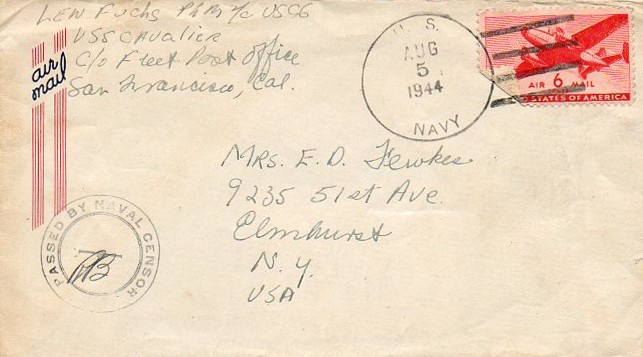 Lew Fuchs PhM 1/c USCG
USS Cavalier
c/o Fleet Post Office
San Francisco, Cal.
air
mail
U. S.
AUG
5
1944
NAVY
AIR 6 MAIL
UNITED STATES OF AMERICA
Mrs. E. D. Fewkes
9235 51st Ave.
Elmhurst
N. Y.
USA
PASSED BY NAVAL CENSOR